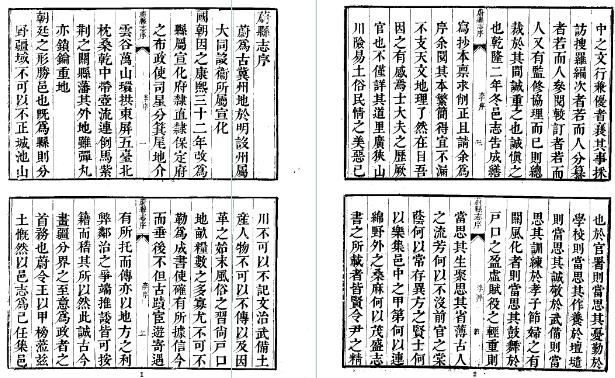 蔚縣志序
蔚爲古冀州地於明設州屬
大同設衛所屬宣化
國朝因之康熙三十二年改爲
縣屬宣化府隸直隸保定府
之布政使司星分箕尾地介
蔚縣志序 李序 一
雲谷萬山環拱東屏五臺北
枕桑乾中帶壺流連倒馬紫
荊之關縣藩其外地雖彈丸
亦鎖鑰重地
朝廷之形勝邑也既爲縣則分
野疆域不可以不正城池山
川不可以不記文治武備土
產人物不可以不傳以及因
革之始末風俗之習尚戶口
地畝糧數之多寡尤不可不
勒爲成書使確有所據信今
而垂後不但古蹟宦遊寄遇
蔚縣志序 李序 二
有所托而傳亦以地方之利
弊鄰治之爭端推諉皆可按
籍而稽其所以然此誠古今
畫疆分界之至意爲政者之
首務也蔚令王以甲榜蒞茲
土慨然以邑志爲己任集邑
1
中之文行兼優者裒其事採
訪搜羅綱次者若而人分纂
者若而人參閱較訂者若而
人又有監修協理而己則總
裁於其間誠重之也誠慎之
也乾隆二年冬邑志告成繕
蔚縣志序 李序 三
寫抄本稟求削正且請余爲
序余閱其本繁簡得宜不漏
不支天文地理了然在目吾
因之有感爲士大夫之歷厥
官也不僅詳其道里廣狹山
川險易土俗民情之美惡已
也於官署則當思其憂勤於
學校則當思其作養於壇壝
則當思其誠敬於武備則當
思其訓練於孝子節婦之有
關風化者則當思其鼓舞於
戶口之盈虛賦役之輕重則
蔚縣志序 李序 四
當思其生聚思其省薄古人
之流芳何以不沒前官之棠
蔭何以常存異方之賢士何
以樂集邑中之甲第何以連
綿野外之桑麻何以茂盛志
書之所載者皆賢令尹之精
2